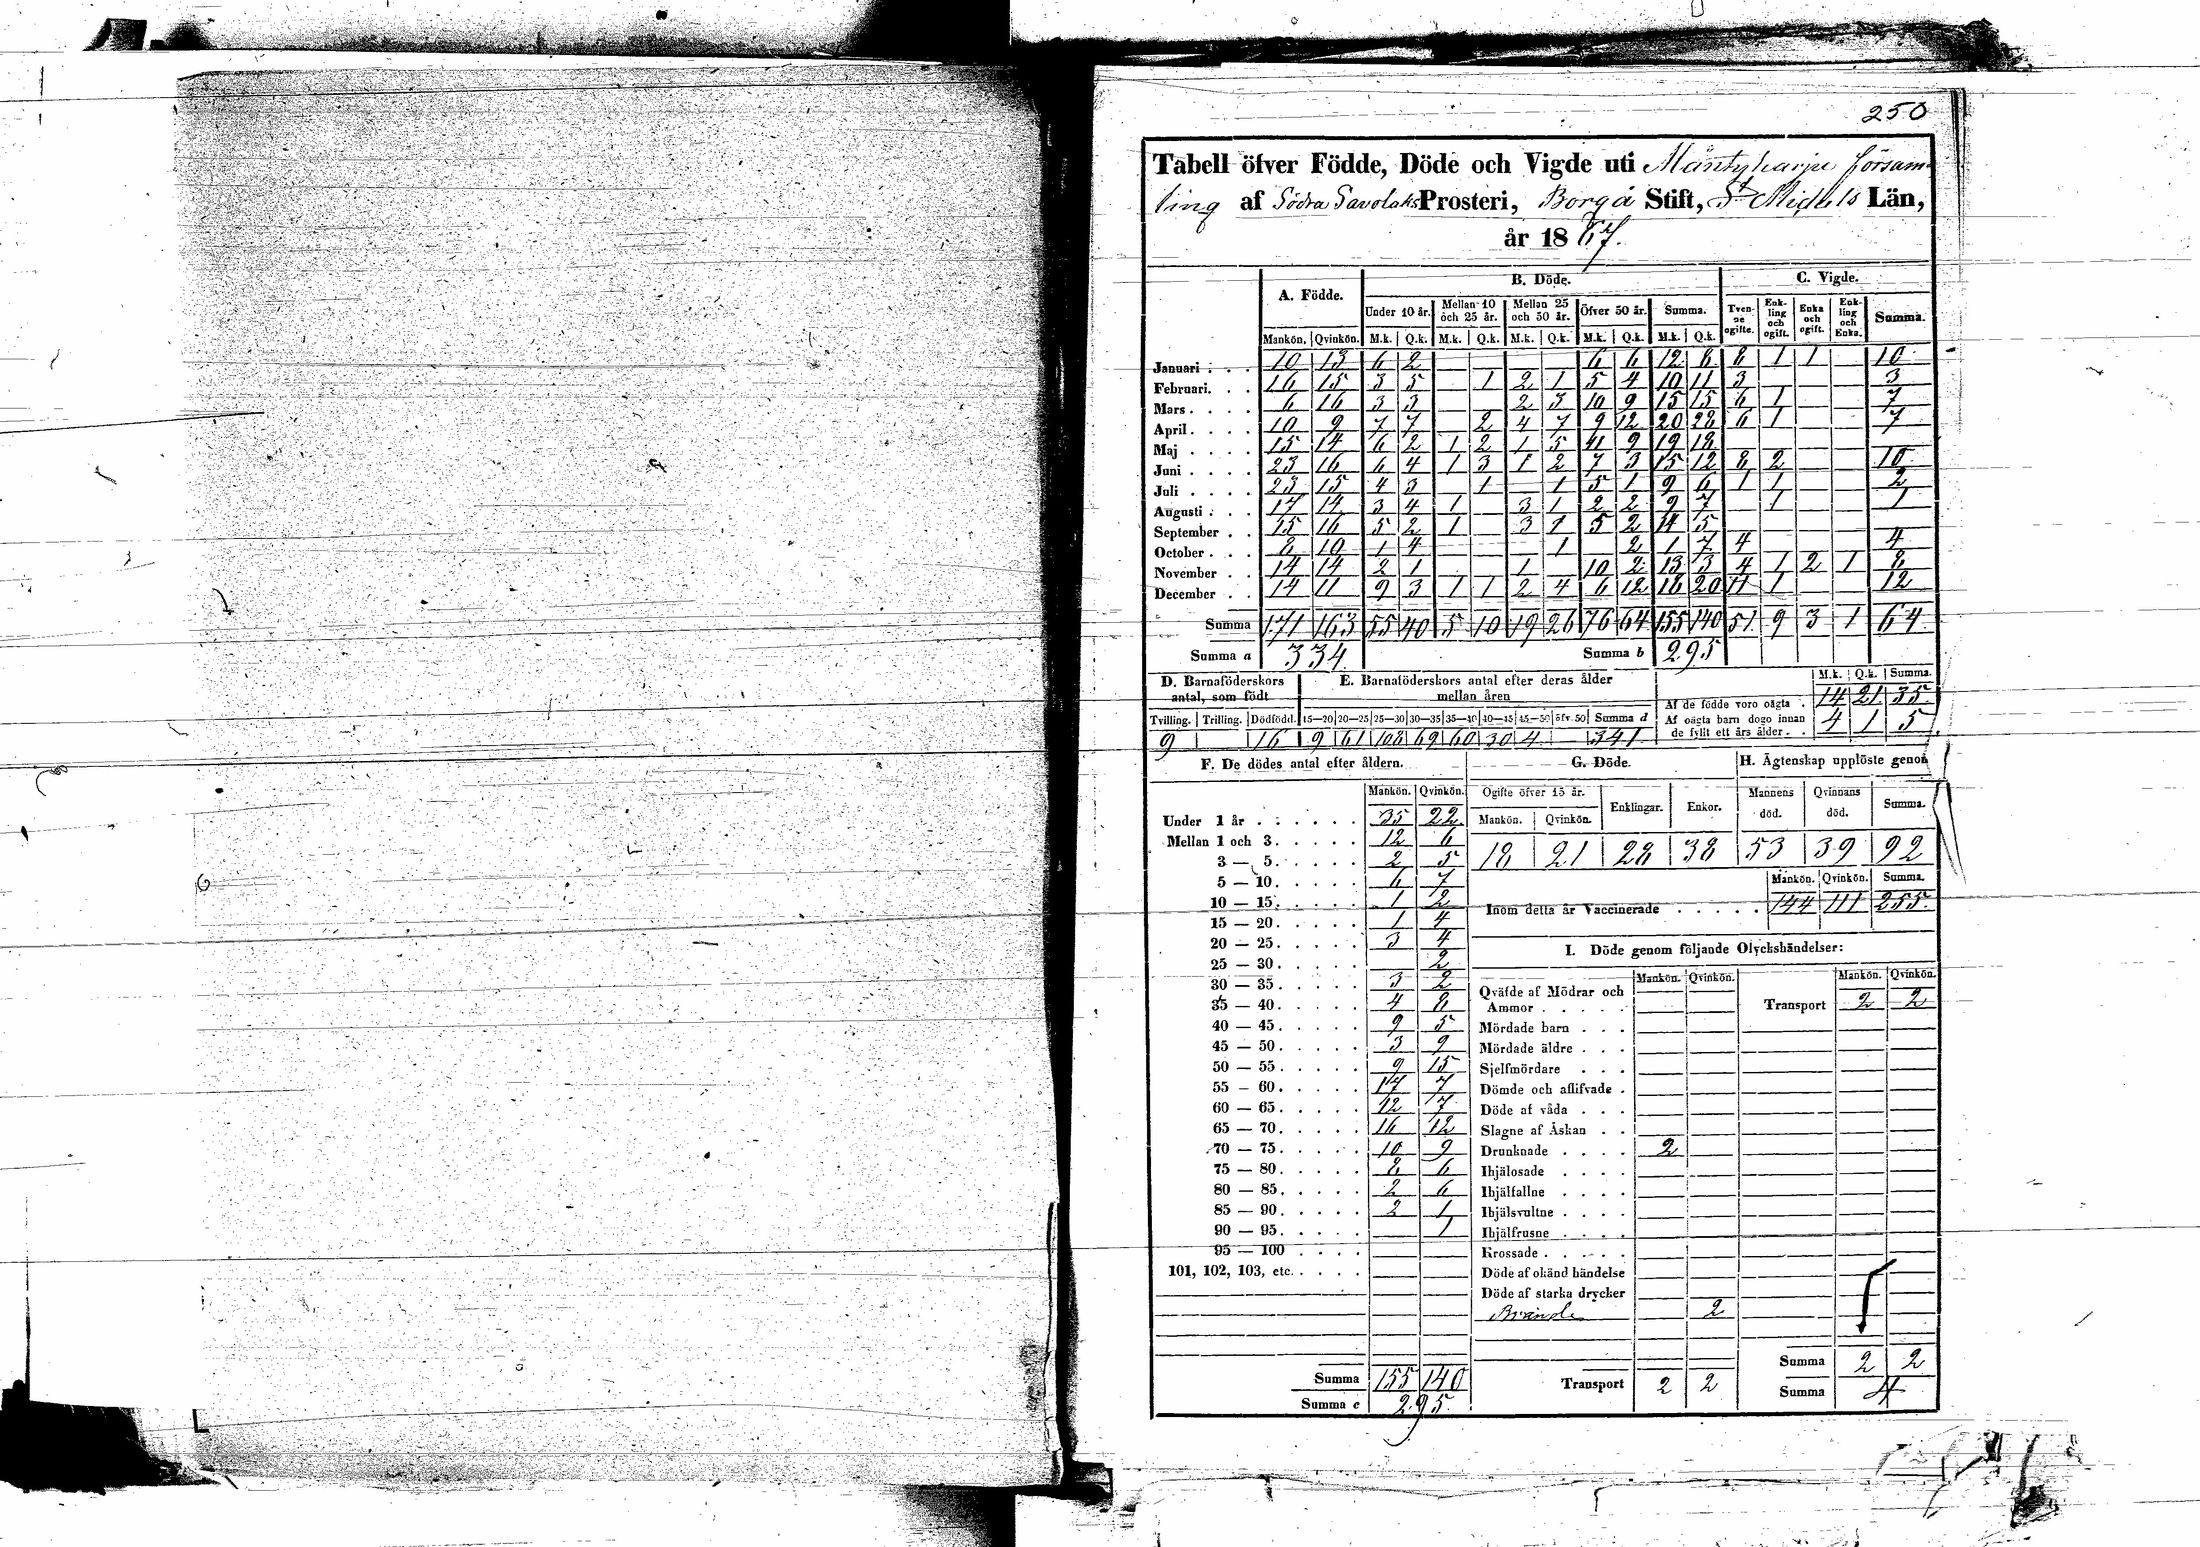 250
Tabell öfver Födde, Döde och Vigde uti Mäntyharju försam-
ling af Södra Savolaks Prosteri, Borgå Stift, S:t Michels Län,
år 1867.
A. Födde. B. Döde. C. Vigde.
Under 10 år. Mellan 10 och 25 år. Mellan 25 och 50 år. Öfver 50 år. Summa. Tvenne ogifte. Enkling och ogift. Enka och ogift. Enkling och Enka. Summa.
Mankön. Qvinkön. M.k. Q.k. M.k. Q.k. M.k. Q.k. M.k. Q.k. M.k. Q.k.
Januari . . . 10 13 6 2 6 6 12 8 8 1 1 10
Februari. . . 16 15 3 5 1 2 1 5 4 10 11 3 3
Mars . . . . 6 16 3 3 2 3 10 9 15 15 6 1 7
April . . . . 10 9 7 7 2 4 7 9 12 20 28 6 1 7
Maj . . . . 15 14 6 2 1 2 1 5 11 9 19 18
Juni . . . . 23 16 6 4 1 3 1 2 7 3 15 12 8 2 10
Juli . . . . 23 15 4 3 1 1 5 1 9 6 1 1 2
Augusti . . . 17 14 3 4 1 3 1 2 2 9 7 1 1
September . . 15 16 5 2 1 3 1 5 2 14 5
October . . . 8 10 1 4 1 2 1 7 4 4
November . . 14 14 2 1 1 10 2 13 3 4 1 2 1 8
December . . 14 11 9 3 1 1 2 4 6 12 18 20 11 1 12
Summa 171 163 55 40 5 10 19 26 76 64 155 140 51 9 3 1 64
Summa a 334. Summa b 295
D. Barnaföderskors antal, som födt
Tvilling. Trilling. Dödfödd.
9 16
E. Barnaföderskors antal efter deras ålder mellan åren
15—20 20—25 25—30 30—35 35—40 40—45 45—50 öfv. 50 Summa d
9 61 108 69 60 30 4 341
M.k. Q.k. Summa.
Af de födde voro oägta . 14 21 35
Af oägta barn dogo innan
de fyllt ett års ålder . . 4 1 5
F. De dödes antal efter åldern.
Mankön. Qvinkön.
Under 1 år . . . . . . 35 22
Mellan 1 och 3. . . . . 12 6
3 — 5. . . . . 2 5
5 — 10. . . . . 6 7
10 — 15. . . . . 1 2
15 — 20. . . . . 1 4
20 — 25. . . . . 3 4
25 — 30. . . . . 2
30 — 35. . . . . 3 2
35 — 40. . . . . 4 8
40 — 45. . . . . 9 5
45 — 50. . . . . 3 9
50 — 55. . . . . 9 15
55 — 60. . . . . 17 7
60 — 65. . . . . 12 7
65 — 70. . . . . 16 12
70 — 75. . . . . 10 9
75 — 80. . . . . 8 6
80 — 85. . . . . 2 6
85 — 90. . . . . 2 1
90 — 95. . . . . 1
95 — 100 . . . .
101, 102, 103, etc. . . . .
Summa 155 140
Summa c 295
G. Döde.
Ogifte öfver 15 år. Enklingar. Enkor.
Mankön. Qvinkön.
18 21 28 38
H. Ägtenskap upplöste genom
Mannens död. Qvinnans död. Summa.
53 39 92
Mankön. Qvinkön. Summa.
Inom detta år Vaccinerade . . . . . 144 111 255.
I. Döde genom följande Olyckshändelser:
Mankön. Qvinkön. Mankön. Qvinkön.
Qväfde af Mödrar och
Ammor . . . . . Transport 2 2
Mördade barn . . .
Mördade äldre . . .
Sjelfmördare . . .
Dömde och aflifvade .
Döde af våda . . .
Slagne af Åskan . .
Drunknade . . . . 2
Ihjälosade . . . .
Ihjälfallne . . . .
Ihjälsvultne . . . .
Ihjälfrusne . . . .
Krossade . . . . .
Döde af okänd händelse
Döde af starka drycker
Brände 2
Summa 2 2
Transport 2 2
Summa 4